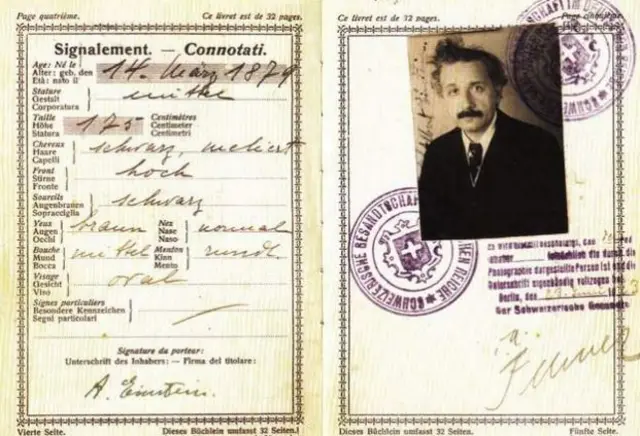 Page quatrième. Ce livret est de 32 pages.
Signalement. — Connotati.
Age: Né le
Alter: geb. den 14. März 1879
Età: nato il
Stature
Gestalt mittel
Corporatura
Taille Centimètres
Höhe 175 Centimeter
Statura Centimetri
Cheveux
Haare schwarz, meliert
Capelli
Front
Stirne hoch
Fronte
Sourcils
Augenbrauen schwarz
Sopracciglia
Yeux Nez
Augen braun Nase normal
Occhi Naso
Bouche Menton
Mund mittel Kinn rund
Bocca Mento
Visage
Gesicht oval
Viso
Signes particuliers
Besondere Kennzeichen
Segni particolari
Signature du porteur:
Unterschrift des Inhabers: — Firma del titolare:
A. Einstein.
Vierte Seite. Dieses Büchlein umfasst 32 Seiten.
Ce livret est de 32 pages. Page cinquième
SCHWEIZERISCHE GESANDTSCHAFT
REICHE
die durch die
Photographie dargestellte Person ist und die
Unterschrift eigenhändig vollzogen
Berlin, den
Der Schweizerische Gesandte
Dieses Büchlein umfasst 32 Seiten. Fünfte Seite.